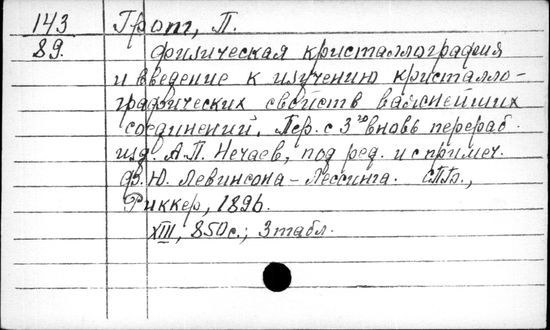 143
89.
Грот, П.
Физическая кристаллография
и введение к изучению кристалло-
графических свойств важнейших
соединений. Пер. с 3го вновь перераб.
изд. А.П. Нечаев, под ред. и с примеч.
Ф.Ю. Левинсона-Лессинга. СПб.,
Риккер, 1896.
XIII, 850 с.; 3 табл.